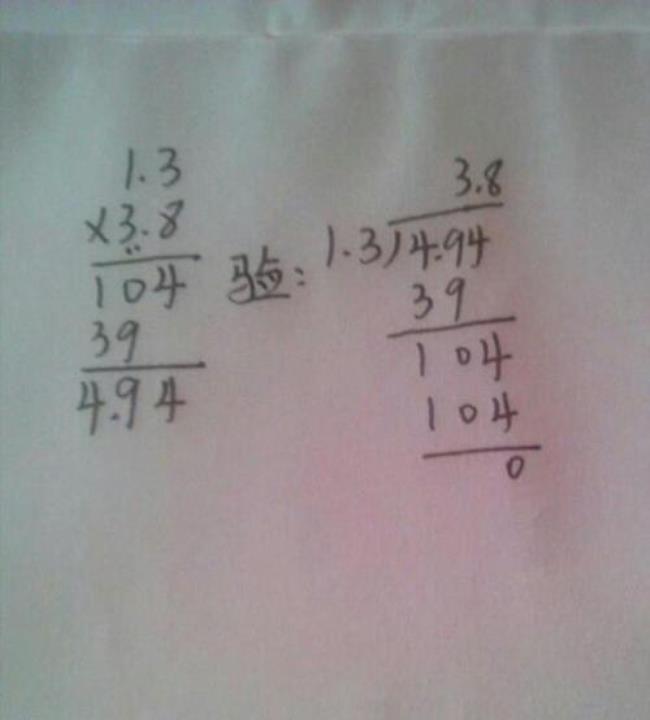 1.3
×3.8
104
39
4.94
验:
3.8
1.3)4.94
39
104
104
0